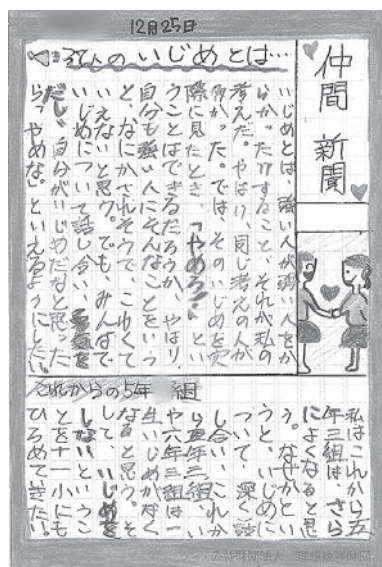 12月25日
仲間 新聞
のいじめとは…
いじめとは、強い人が弱い人をか
らかったりすること、それが私の
考えだ。やはり、同じ考えの人が
多かった。では、そのいじめを実
際に見たとき、「やめろ!」とい
うことはできるだろうか、やはり、
自分も強い人にそんなことをいう
と、なにかされそうで、こわくて
いえないと思う。でも、みんなで
いじめについて話し合い、勇気を
だし、自分がいじめだなと思った
ら、「やめな」といえるようにしたい。
これからの5年 組
私はこれから五
年三組は、さら
によくなると思
う。なぜかとい
うと、いじめに
ついて、深く話
し合い、これか
ら五年三組、い
や六年三組は一
生いじめがなく
なると思う。そ
して、いじめを
しないというこ
とを十一小にも
ひろめてきたい。
公益財団法人 理想教育財団